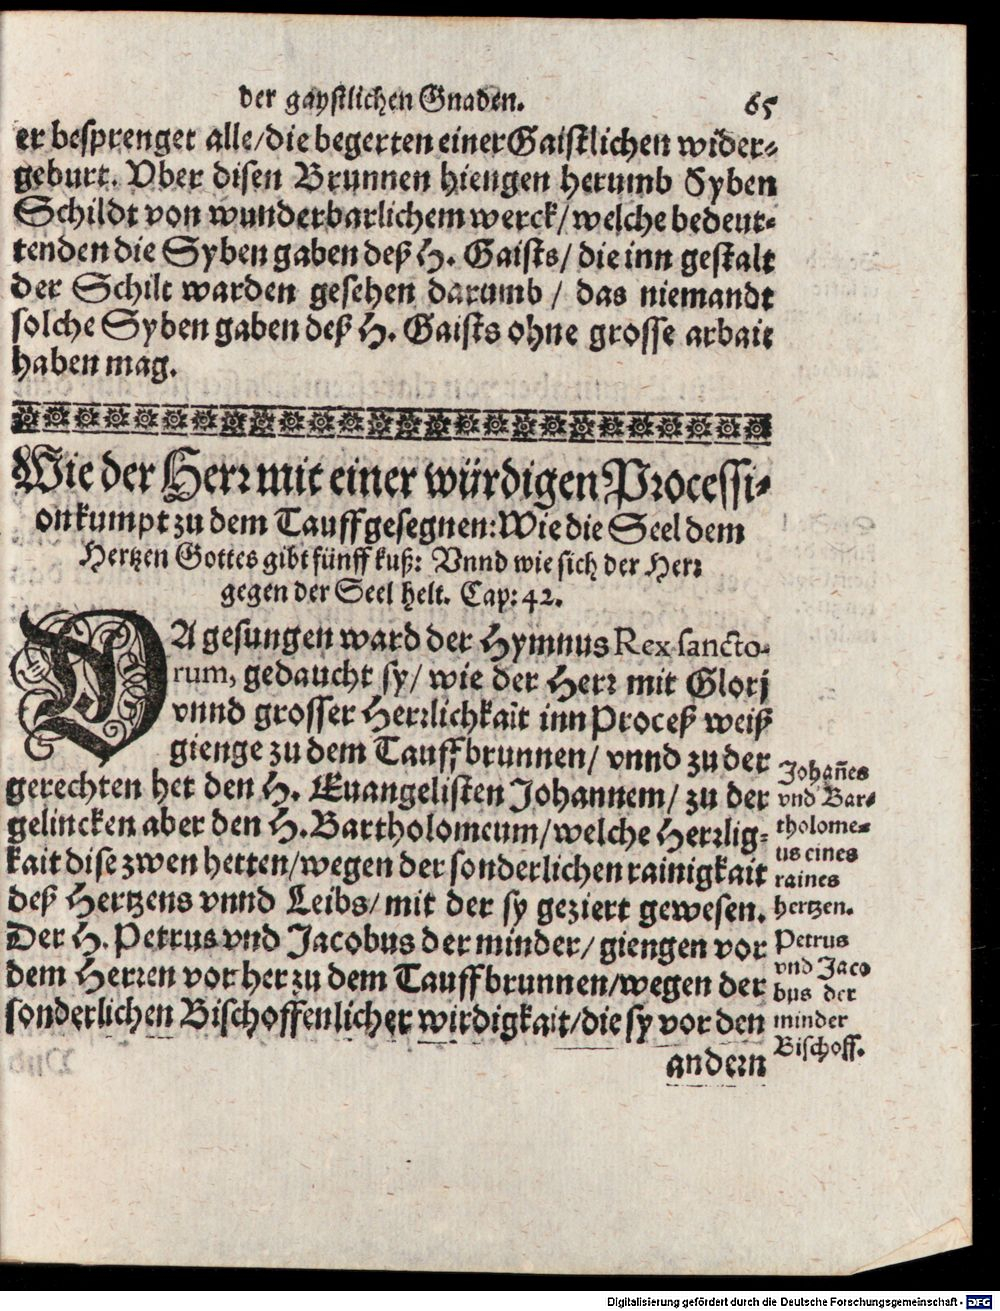 der gaystlichen Gnaden. 65
er besprenget alle/die begerten einer Gaistlichen wider-
geburt. Vber disen Brunnen hiengen herumb Syben
Schildt von wunderbarlichem werck/welche bedeut-
tenden die Syben gaben deß H. Gaists/ die inn gestalt
der Schilt warden gesehen darumb / das niemandt
solche Syben gaben deß H. Gaists ohne grosse arbait
haben mag.
Wie der Herr mit einer würdigen Processi-
on kumpt zu dem Tauff gesegnen: Wie die Seel dem
Hertzen Gottes gibt fünff kuß: Vnnd wie sich der Herr
gegen der Seel helt. Cap: 42.
DA gesungen ward der Hymnus Rex sancto-
rum, gedaucht sy/ wie der Herr mit Glorj
vnnd grosser Herrlichkait inn Proceß weiß
gienge zu dem Tauffbrunnen/ vnnd zu der
gerechten het den H. Euangelisten Johannem/ zu der
gelincken aber den H. Bartholomeum/welche Herrlig-
kait dise zwen hetten/wegen der sonderlichen rainigkait
deß Hertzens vnnd Leibs/mit der sy geziert gewesen.
Der H. Petrus vnd Jacobus der minder/ giengen vor
dem Herren vorher zu dem Tauffbrunnen/wegen der
sonderlichen Bischoffenlicher wirdigkait/die sy vor den
andern
Johañes
vnd Bar-
tholome-
us eines
raines
hertzen.
Petrus
vnd Jaco
bus der
minder
Bischoff.
Digitalisierung gefördert durch die Deutsche Forschungsgemeinschaft - DFG